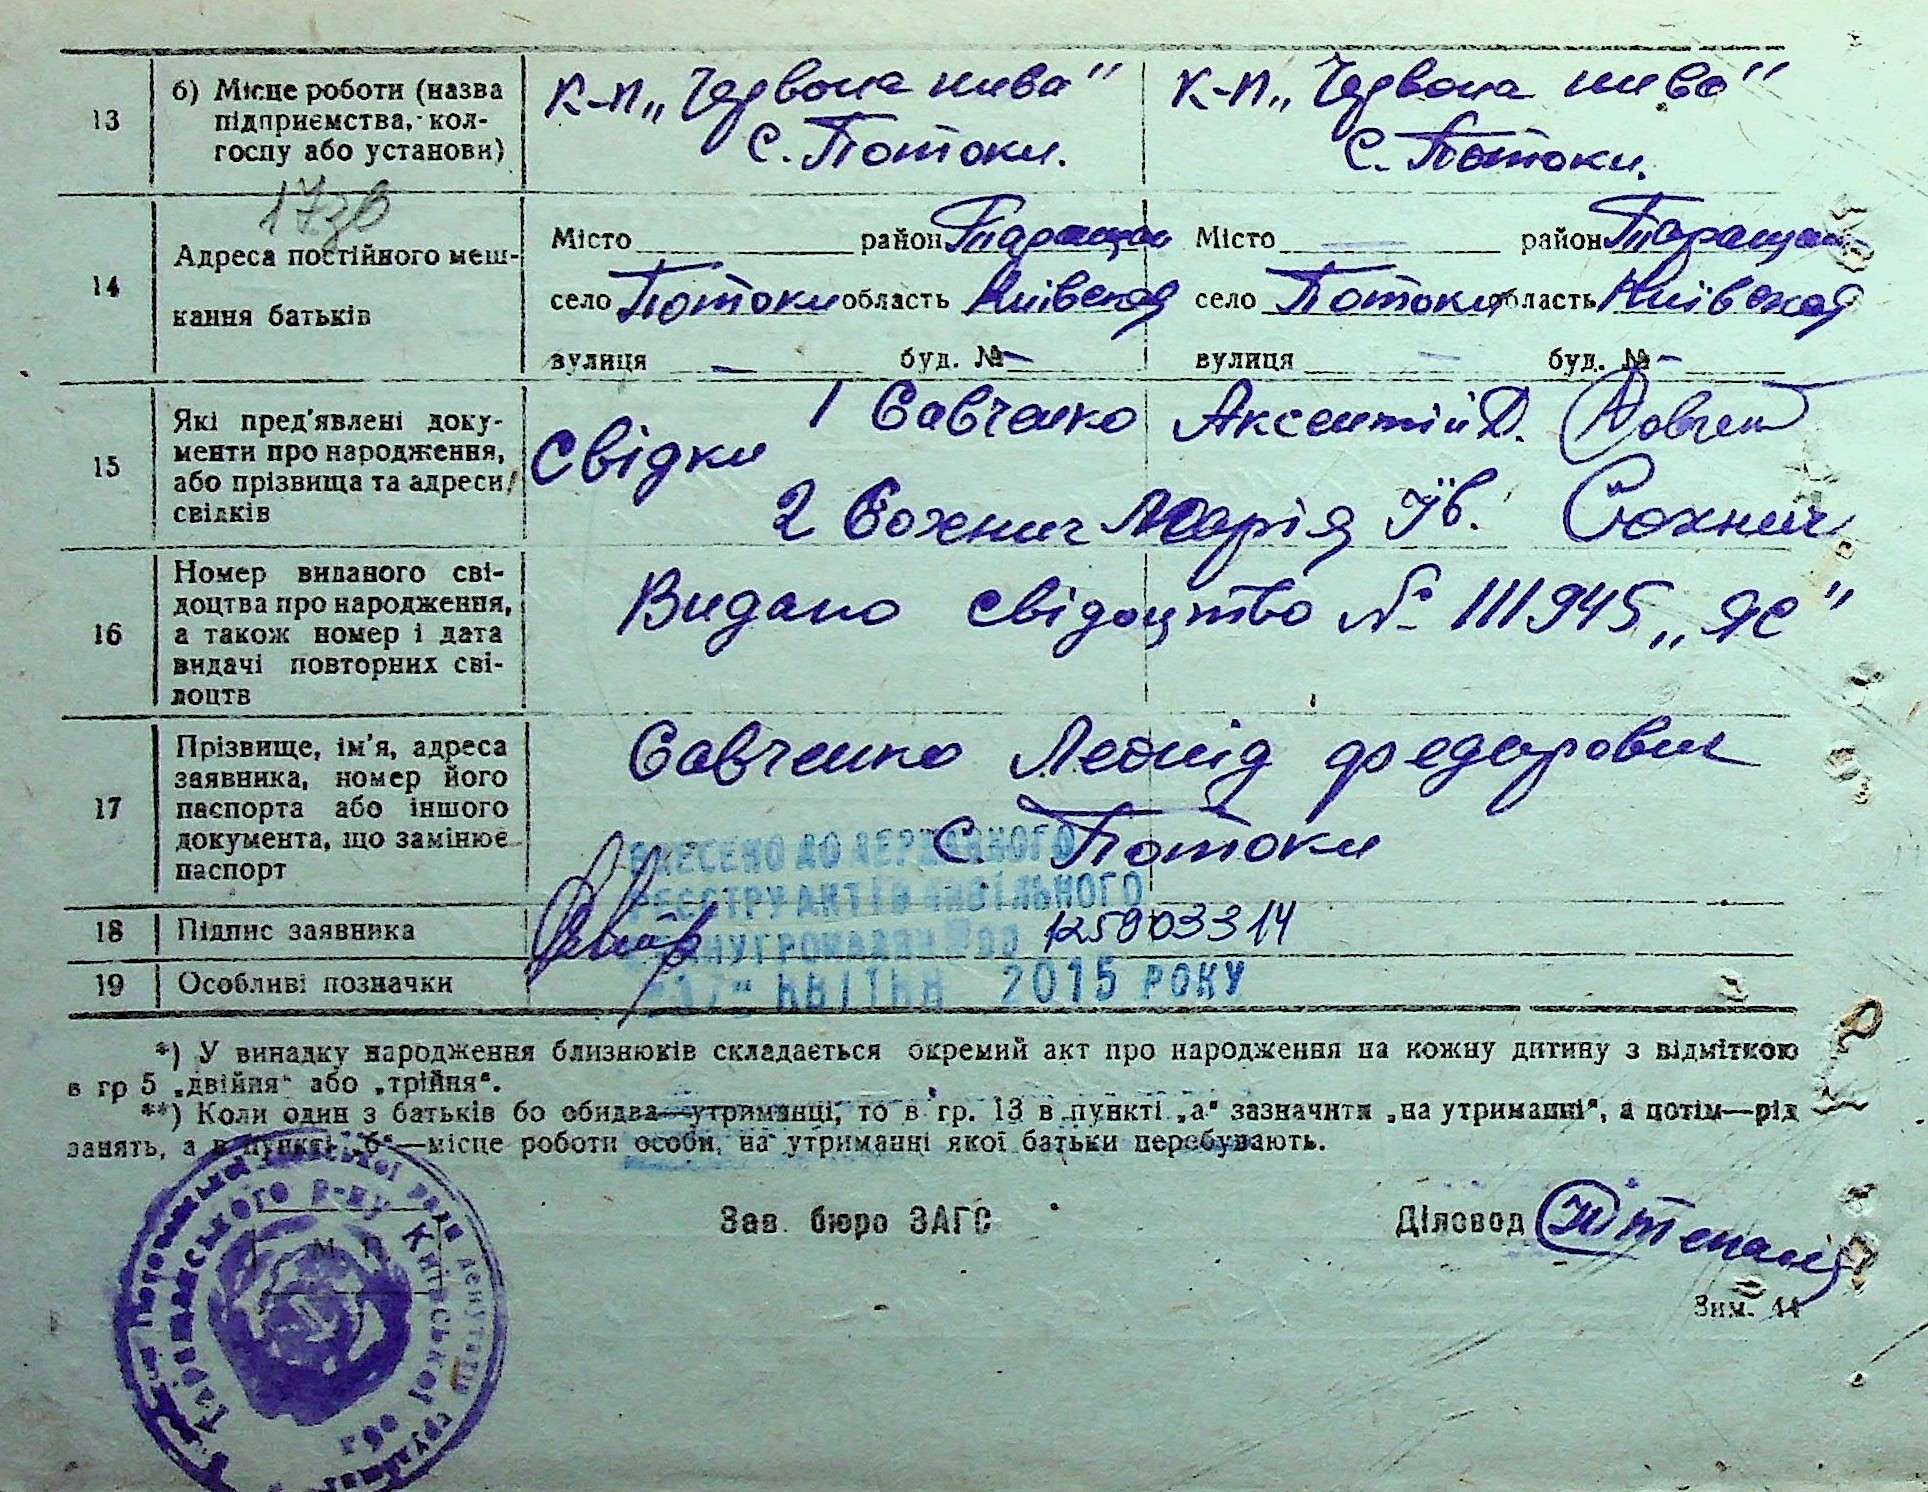 13 б) Місце роботи (назва підприємства, колгоспу або установи)
К-п „Червона нива" К-п „Червона нива"
с. Потоки. с. Потоки.
17зв
14 Адреса постійного мешкання батьків
Місто район Таращан Місто — район Таращан
село Потоки область Київская село Потоки область Київская
вулиця — буд. № — вулиця — буд. № —
15 Які пред'явлені документи про народження, або прізвища та адреси свідків
Свідки 1 Савченко Аксентій Д.
2 Сохнич Марія Ів. Сохнич
16 Номер виданого свідоцтва про народження, а також номер і дата видачі повторних свідоцтв
Видано свідоцтво № 111945 „ЯЄ"
17 Прізвище, ім'я, адреса заявника, номер його паспорта або іншого документа, що замінює паспорт
Савченко Леонід Федорович
с. Потоки
ВНЕСЕНО ДО ДЕРЖАВНОГО
РЕЄСТРУ АКТІВ ЦИВІЛЬНОГО
СТАНУ ГРОМАДЯН 125903314
18 Підпис заявника
19 Особливі позначки
КВІТНЯ 2015 РОКУ
*) У випадку народження близнюків складається окремий акт про народження на кожну дитину з відміткою
в гр 5 „двійня" або „трійня".
**) Коли один з батьків бо обидва—утриманці, то в гр. 13 в пункті „а" зазначити „на утриманні", а потім—рід
занять, а в пункті „б"—місце роботи особи, на утриманні якої батьки перебувають.
Таращанського р-ну Київської обл
М. П.
Зав. бюро ЗАГС Діловод
Зим. 44